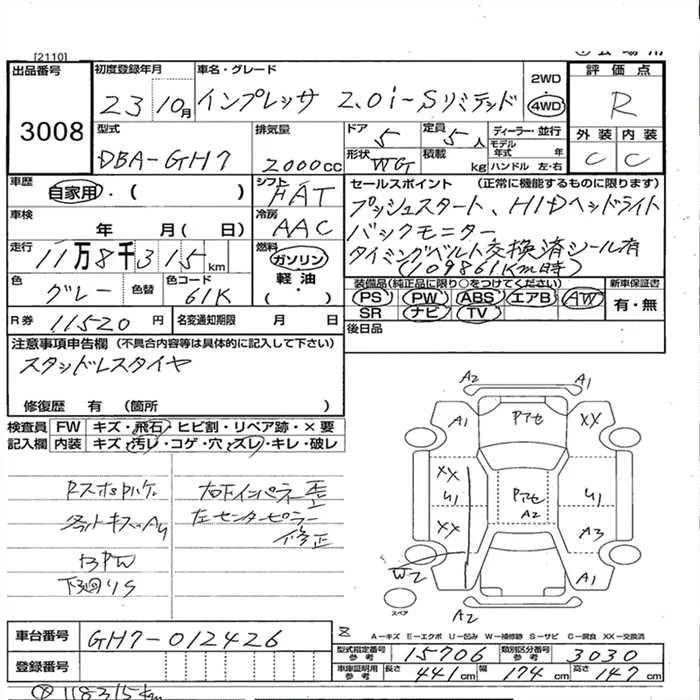 [2110]
出品番号
3008
初度登録年月
23 10月
車名・グレード
インプレッサ 2.0i-Sリミテッド
2WD
4WD
評価点
R
外装 内装
C C
型式
DBA-GH7
排気量
2000cc
ドア
5
定員
5人
ディーラー・並行
モデル年式 年
形状
WGT
積載
kg
ハンドル 左・右
車歴
自家用・( )
シフト
FAT
セールスポイント (正常に機能するものに限ります)
プッシュスタート、HIDヘッドライト
バックモニター
タイミングベルト交換済シール有
(109861Km時)
車検
年 月( 日)
冷房
AAC
走行
11万8千315km
燃料
ガソリン
軽油
・( )
色
グレー
色替
色コード
61K
装備品(純正品に限り○をつけてください)
PS PW ABS エアB AW
SR ナビ TV
新車保証書
有・無
R券 11520円
名変通知期限 月 日
後日品
注意事項申告欄 (不具合内容等は具体的に記入して下さい)
スタッドレスタイヤ
修復歴 有 (箇所 )
検査員記入欄
FW キズ・飛石・ヒビ割・リペア跡・×要
内装 キズ・汚レ・コゲ・穴・ズレ・キレ・破レ
右下インパネー歪
左センターピラー
修正
A2 A1
A1 XX
XX
U1 U1
XX
A2
A3
W2
A1
スペア
A2
A-キズ E-エクボ U-凹み W-補修跡 S-サビ C-腐食 XX-交換済
車台番号
GH7-012426
登録番号
型式指定番号 参考
15706
類別区分番号 参考
3030
車庫証明用 参考
長さ 441cm 幅 174cm 高さ 147cm
118315km